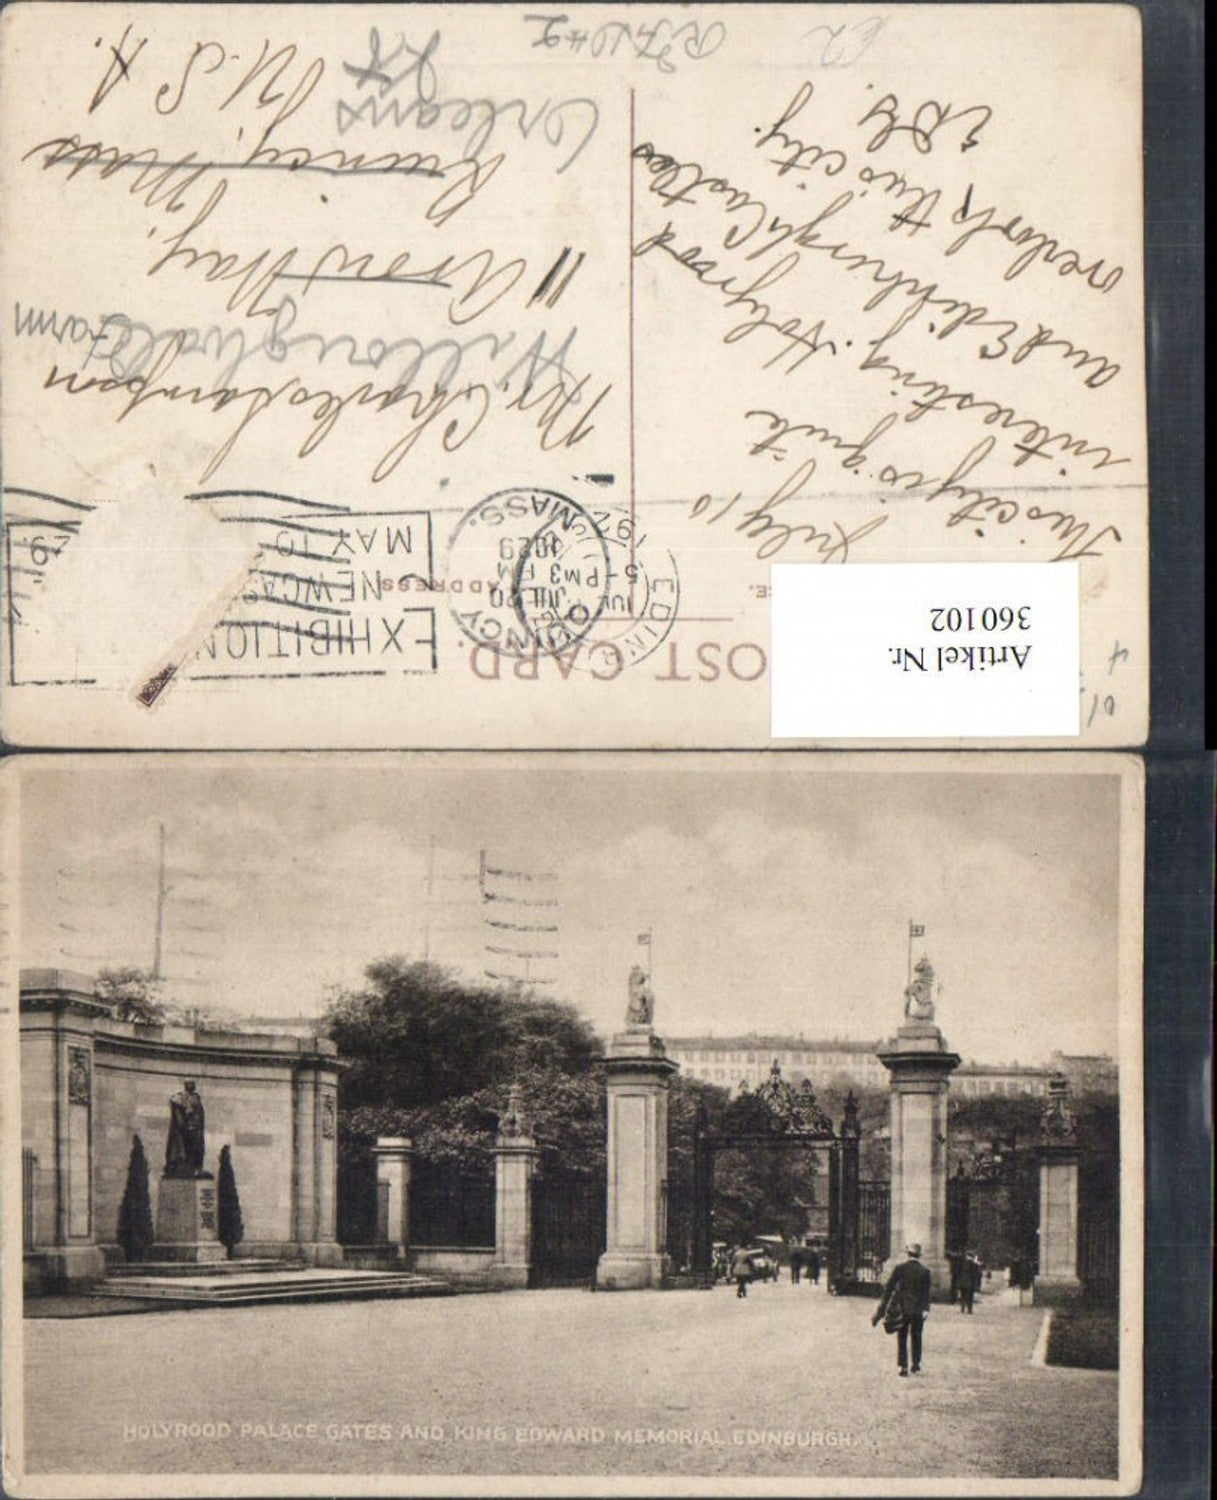 POST CARD.
ADDRESS
Artikel Nr.
360102
EXHIBITION
NEWCAS
MAY 10
EDINB
5-PM
QUINCY
JUL 20
3 PM
1929
MASS.
July 10
This city is quite
interesting. Holyrood
and Edinburgh Castles
overlook this city.
Mr. Charles Sampson
Farm
11 Arrow Way,
Quincy, Mass
Orleans
U.S.A.
HOLYROOD PALACE GATES AND KING EDWARD MEMORIAL. EDINBURGH.